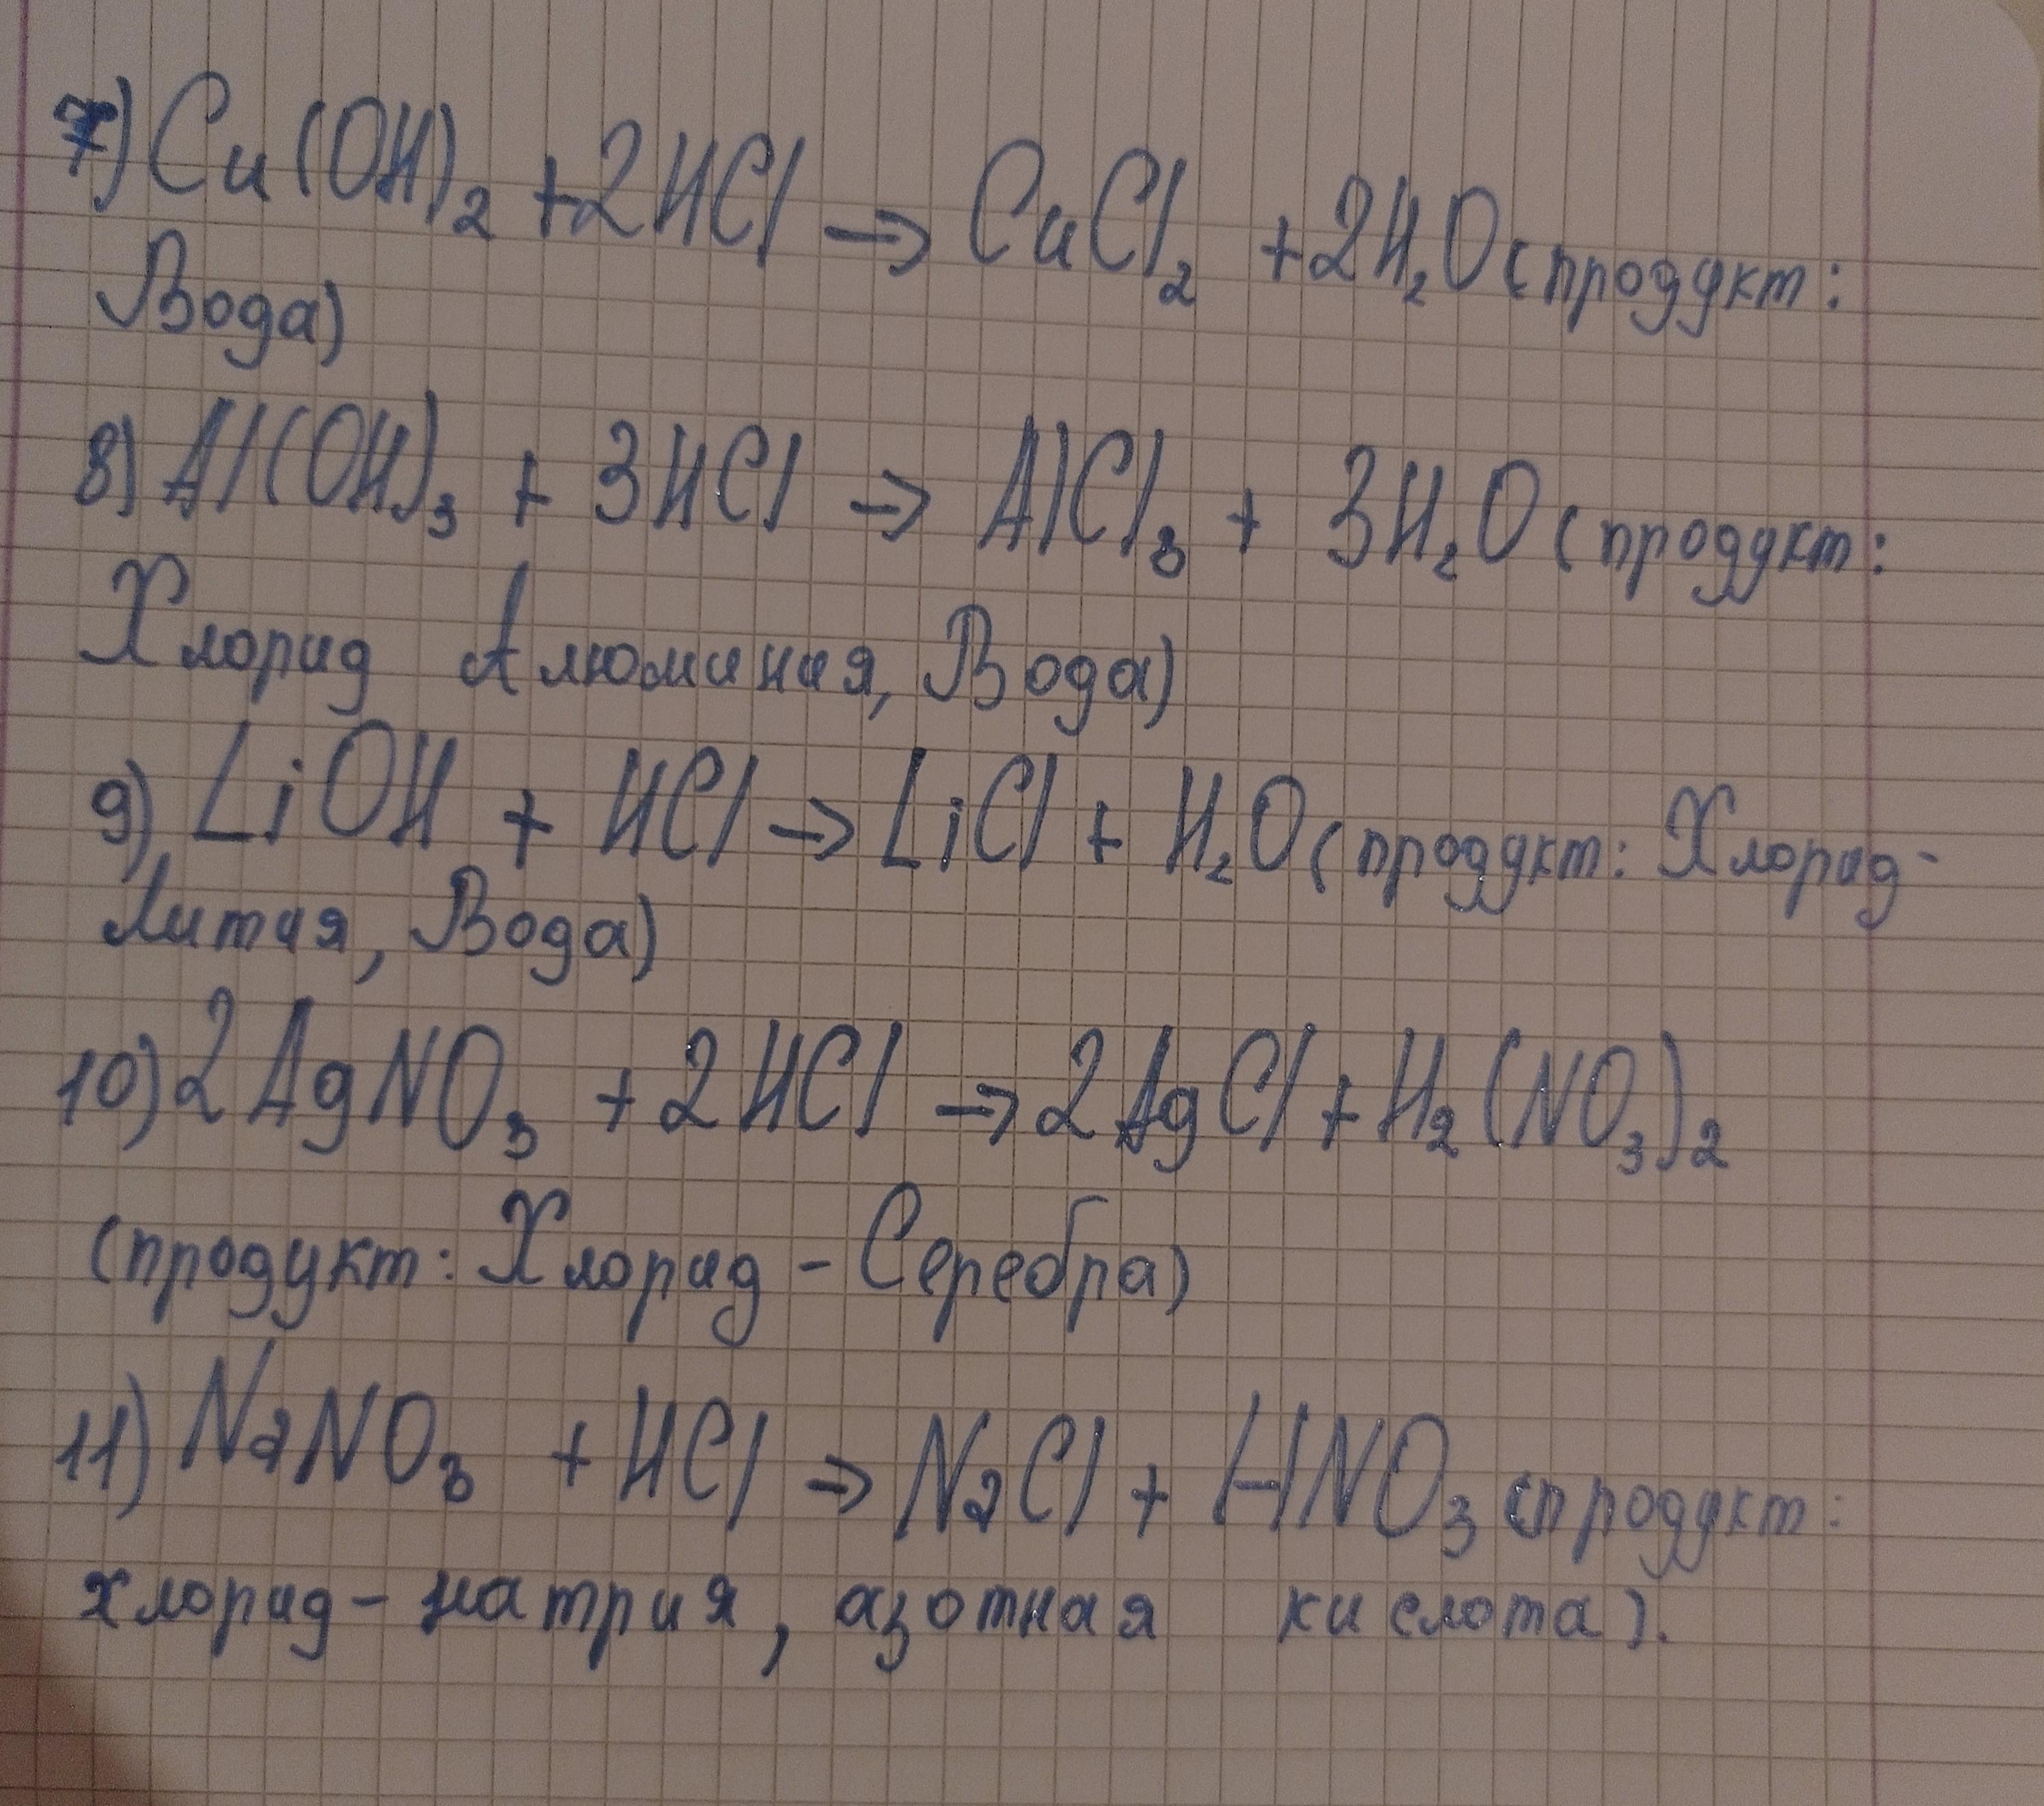 7) Cu(OH)₂ + 2HCl → CuCl₂ + 2H₂O (продукт:
Вода)
8) Al(OH)₃ + 3HCl → AlCl₃ + 3H₂O (продукт:
Хлорид Алюминия, Вода)
9) LiOH + HCl → LiCl + H₂O (продукт: Хлорид-
Лития, Вода)
10) 2AgNO₃ + 2HCl → 2AgCl + H₂(NO₃)₂
(продукт: Хлорид - Серебра)
11) NaNO₃ + HCl → NaCl + HNO₃ (продукт:
хлорид - натрия, азотная кислота).